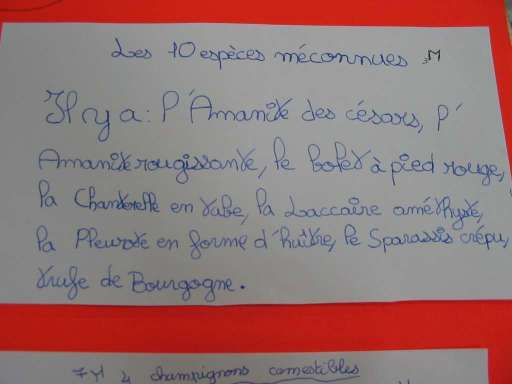 Les 10 espèces méconnues
Il y a : l'Amanite des césars, l'
Amanite rougissante, le bolet à pied rouge,
la Chanterelle en tube, la Laccaire améthyste,
la Pleurote en forme d'huître, le Sparassis crépu,
trufe de Bourgogne.
champignons comestibles